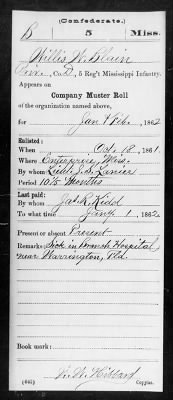 (Confederate.)
B 5 Miss.
Willis W. Blain
Pvt., Co. D, 5 Reg't Mississippi Infantry.
Appears on
Company Muster Roll
of the organization named above,
for Jan & Feb., 1862
Enlisted:
When Oct. 18, 1861
Where Enterprise, Miss.
By whom Lieut. J. S. Lanier
Period 10 1/2 Months
Last paid:
By whom Jas. R. Kidd
To what time Jany 1, 1862
Present or absent Present
Remarks: Sick in branch Hospital
near Warrington, Fla.
Book mark:
(642) Copyist.